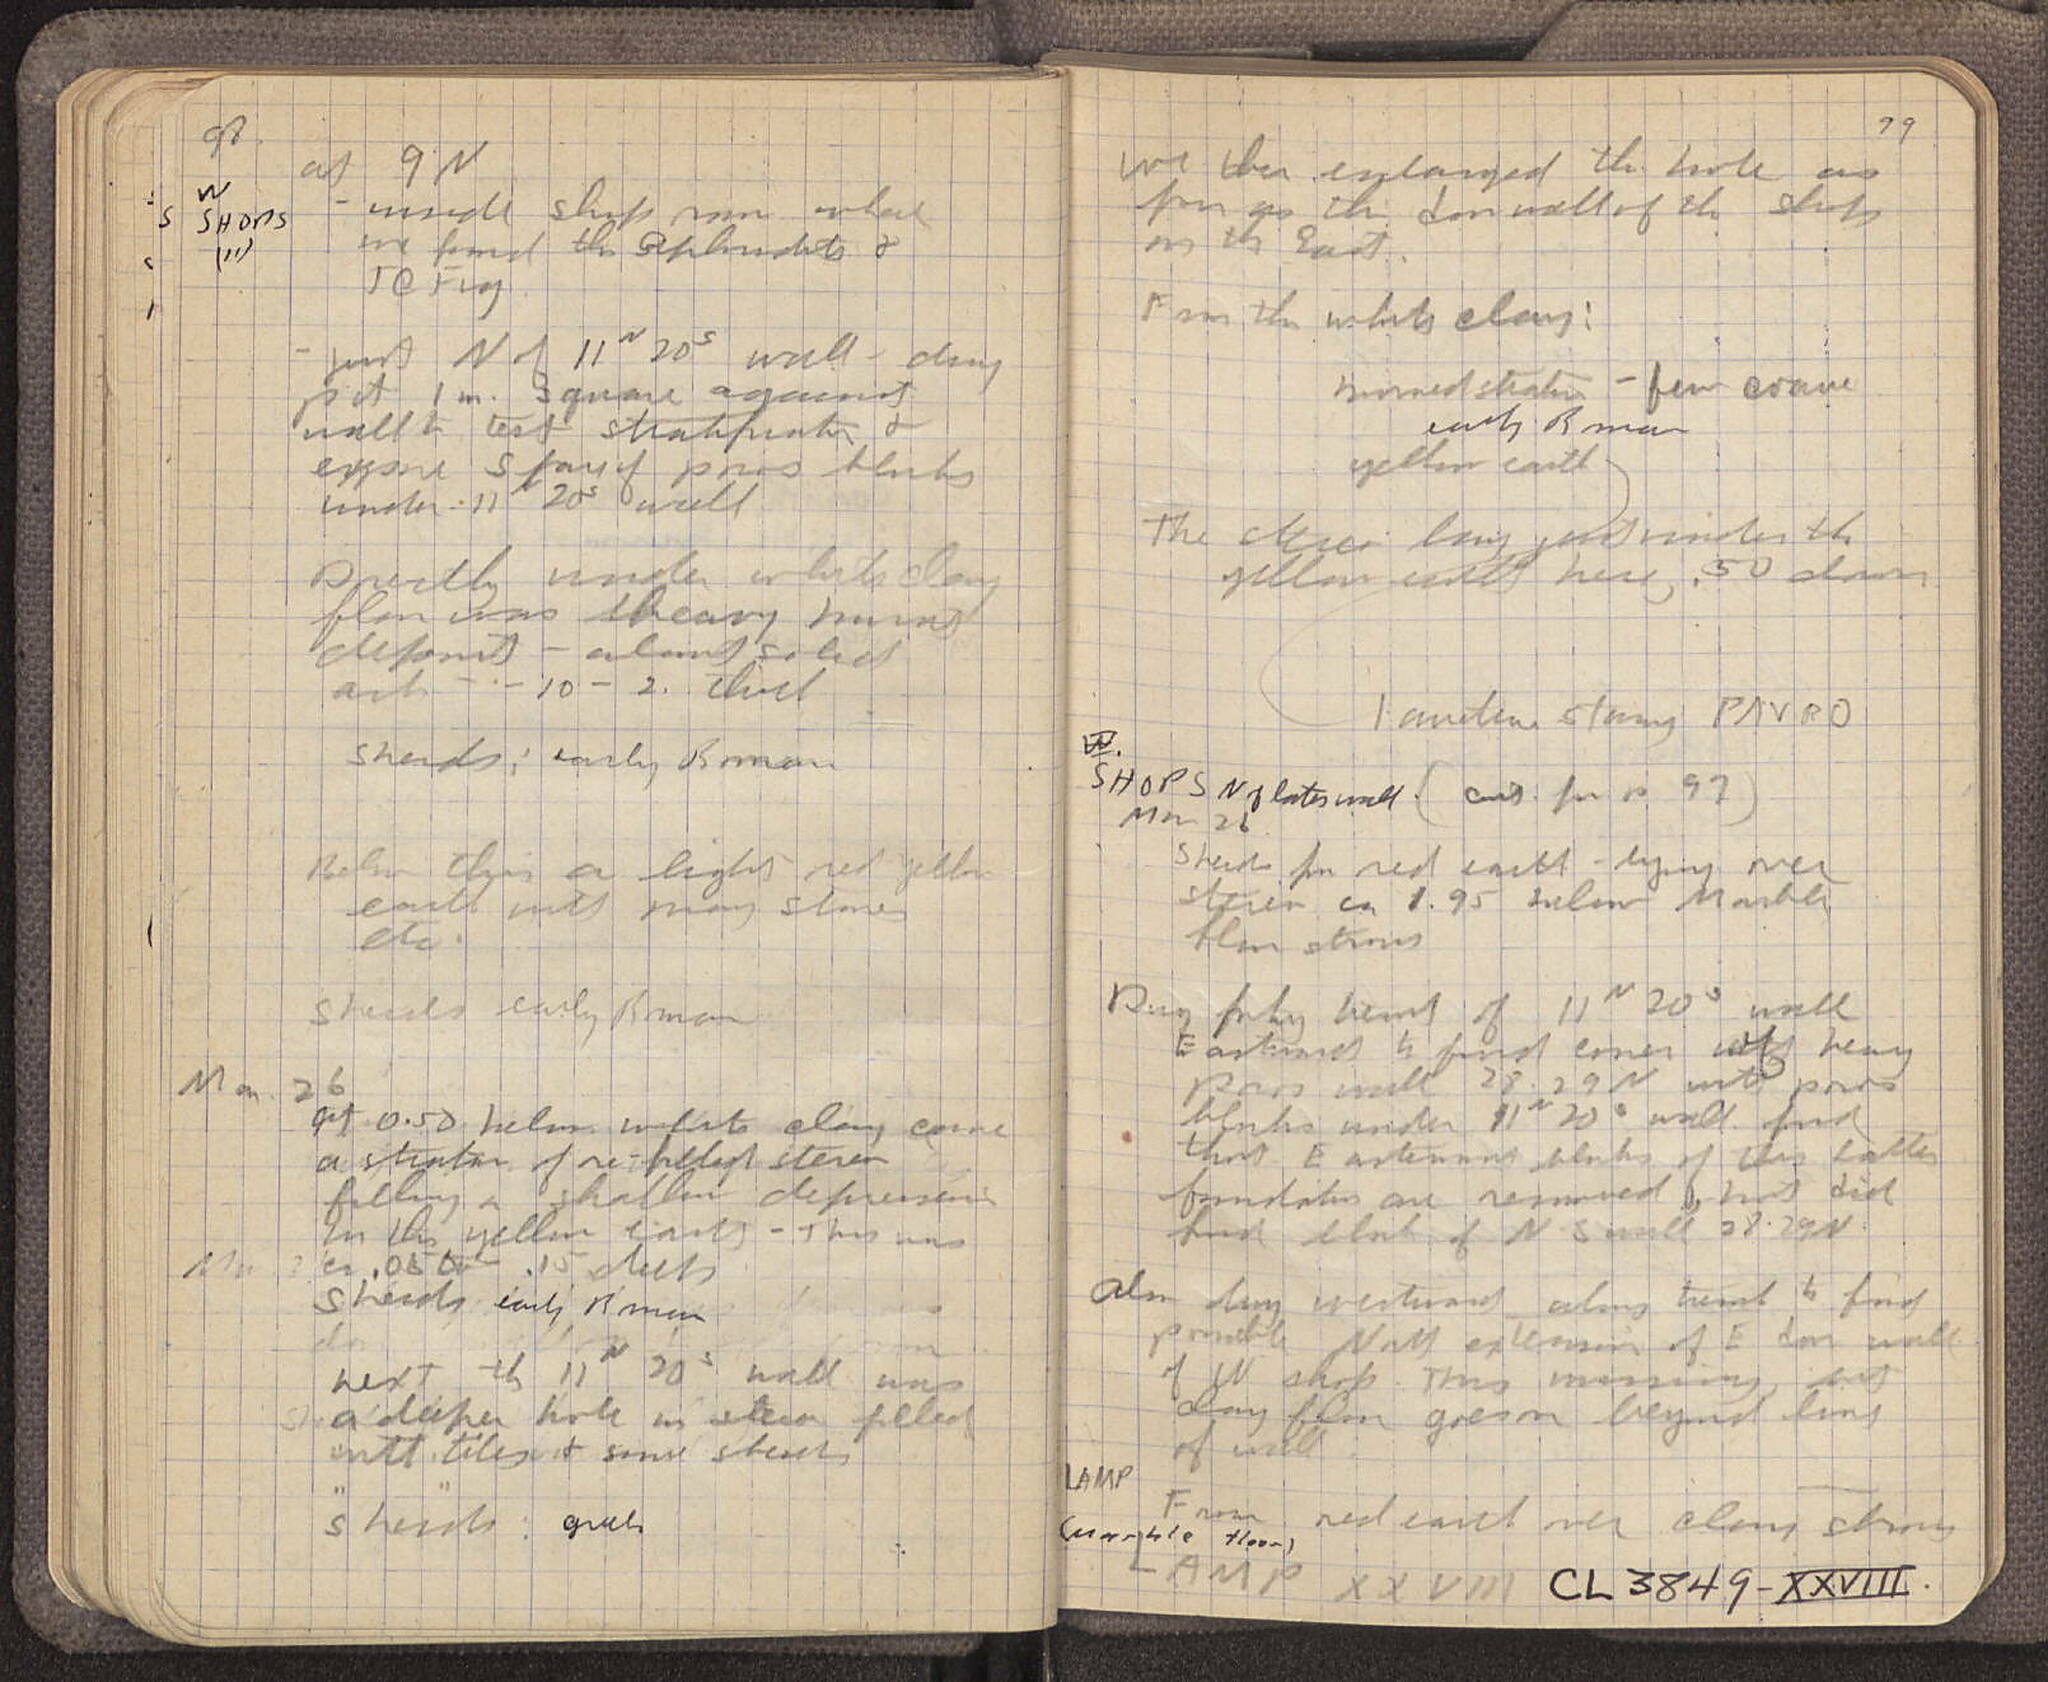 98
at 9 N
W
SHOPS
(11)
- inside shop room where
we found the Aphrodite &
TC Fig
- just N of 11N 20S wall - dug
pit 1 m. square against
wall to test stratification &
expose S face of poros blocks
under 11 20S wall
Directly under white clay
floor was heavy burnt
deposit - almost solid
ash - .10 - 2. thick
Sherds: early Roman
Below this a light red yellow
earth with many stones
etc.
Sherds early Roman
Mar. 26
At 0.50 below white clay came
a stratum of re-filled stereo
filling a shallow depression
in the yellow earth - This was
ca .05 to .15 deep
Sherds early Roman
next the 11N 20S wall was
a deeper hole in stereo filled
with tiles & some sherds
" "
Sherds: greek
99
We then enlarged the hole as
far as the door wall of the shops
on the East.
From the white clay:
burned stratum - few coarse
early Roman
yellow earth
The stereo lay just under the
yellow earth here, .50 down
1 arretine stamp PAVRO
W.
SHOPS N of later wall (cont. from p 97)
Mar 26
Sherds from red earth - lying over
stereo ca 1.95 below Marble
floor strosis
Dug along trench of 11N 20S wall
Eastward to find corner with heavy
poros wall 28.29N with poros
blocks under 11N 20S wall. find
that Easternmost blocks of this latter
foundation are removed, but did
find block of N S wall 28.29N.
Also dug westward along trench to find
possible North extension of E door wall
of W shop. This missing, but
clay floor goes on beyond line
of wall
LAMP
From red earth over clay strosis
(marble floor)
LAMP XXVIII CL 3849-XXVIII.